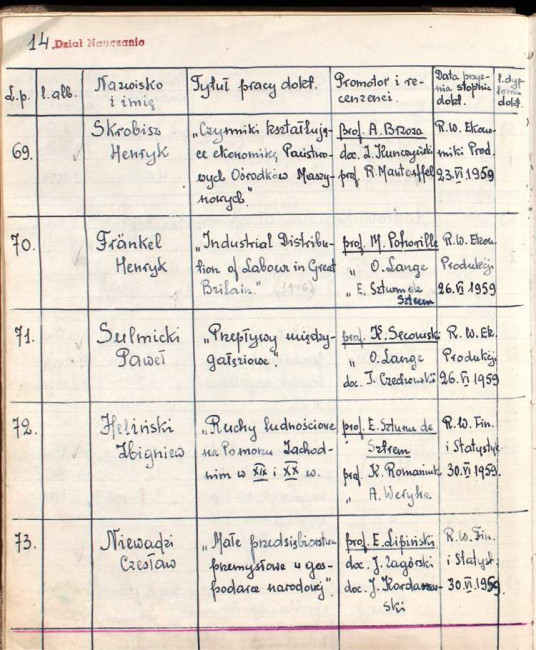 14. Dział Nauczania
L.p. l. alb. Nazwisko i imię Tytuł pracy dokt. Promotor i recenzenci. Data przyznania stopnia dokt. dokt.
69. Skrobisz Henryk
„Czynniki kształtują-
ce ekonomikę Państwo-
wych Ośrodków Maszy-
nowych."
prof. A. Brzoza
doc.
prof. R. Manteuffel
R.W. Ekono-
miki Prod.
23.VI 1959
70. Fränkel Henryk
„Industrial Distribu-
tion of Labour in Great
Britain." (1946)
prof. M. Pohorille
„ O. Lange
„ E. Szturm de
Sztrem
R.W. Ekon.
Produkcji.
26.VI 1959
71. Sulmicki Paweł
„Przepływy między-
gałęziowe".
prof. K. Secomski
„ O. Lange
doc. J. Czechowski
R.W. Ek.
Produkcji.
26.VI 1959
72. Heliński Zbigniew
„Ruchy ludnościowe
na Pomorzu Zachod-
nim w XIX i XX w.
prof. E. Szturm de
Sztrem
prof. K. Romaniuk
„ A. Weryha
R.W. Fin.
i Statystyk
30.VI 1959.
73. Niewadzi Czesław
„Małe przedsiębiorstwa
przemysłowe w gos-
podarce narodowej".
prof. E. Lipiński
doc. J. Zagórski
doc. J. Kordaszew-
ski
R.W. Fin.
i Statyst.
30.VI 1959.